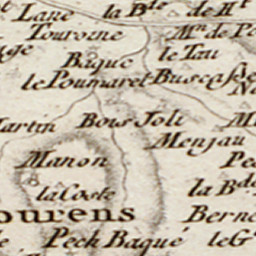 Lane la B.de de H.t
Tourene M.n de Pe
Baque le Tau
le Poumaret Buscasse
Martin Bois Joli M
Menjau
Manon Pe
la Coste la B.de
ourens Berne
Pech Baqué le G.